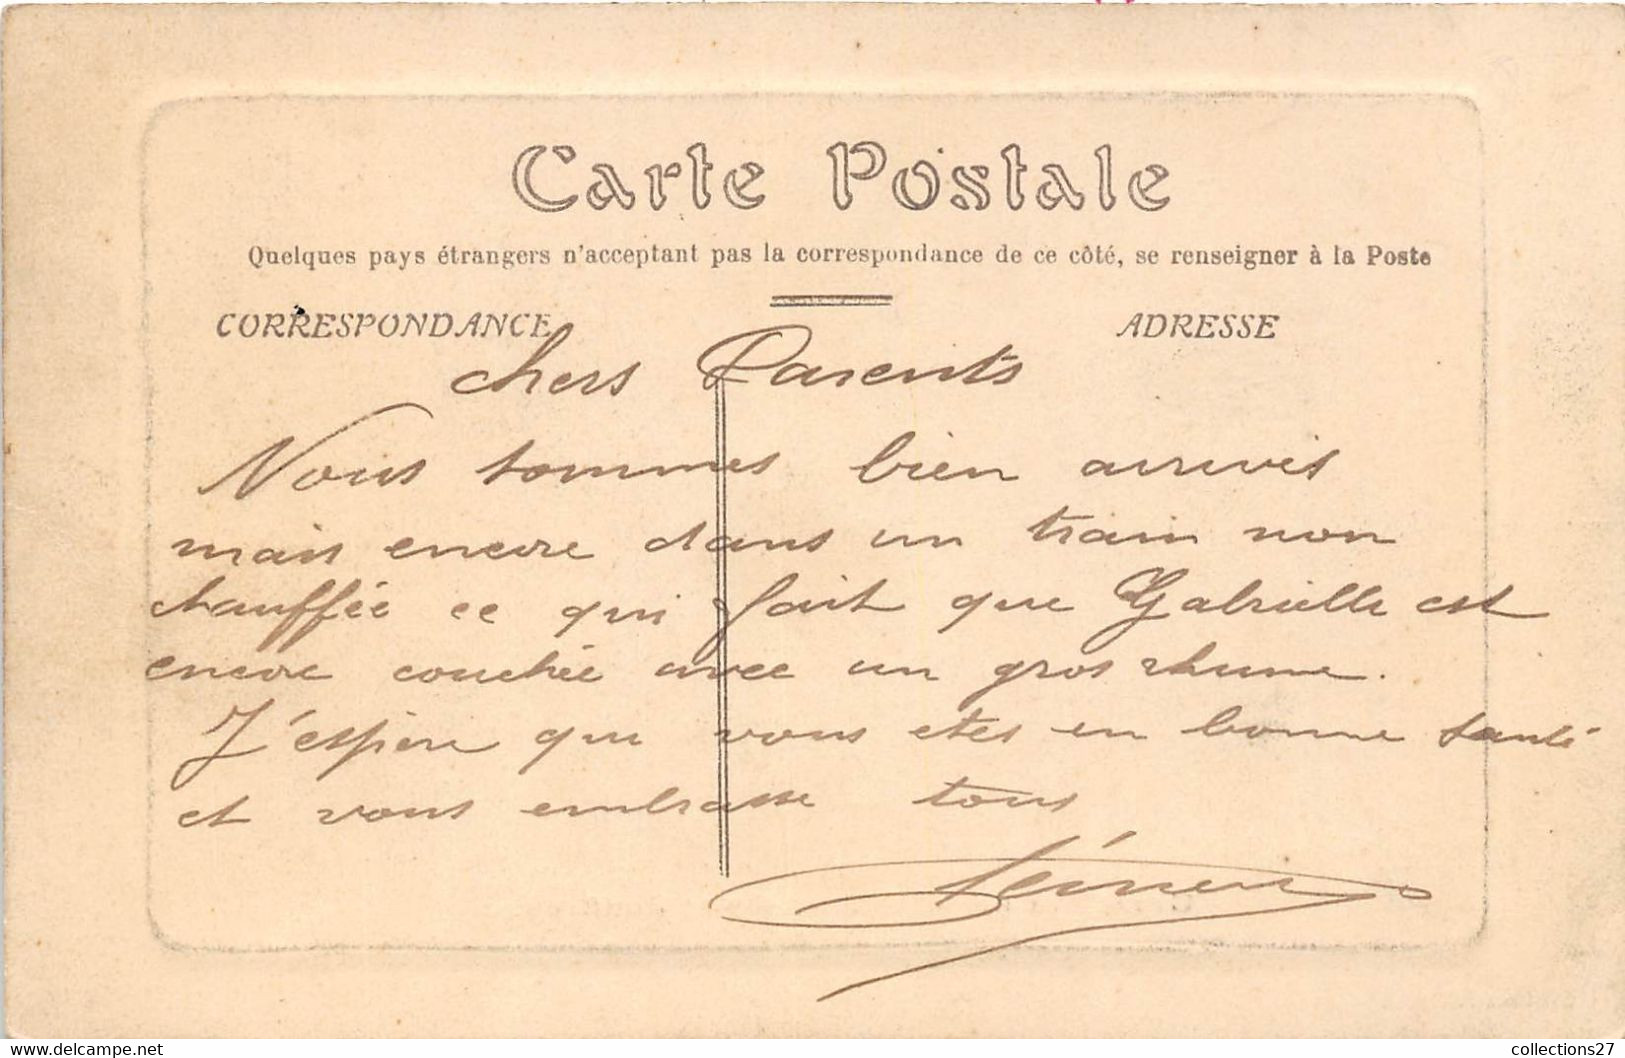 Carte Postale
Quelques pays étrangers n'acceptant pas la correspondance de ce côté, se renseigner à la Poste
CORRESPONDANCE
ADRESSE
chers Parents
Nous sommes bien arrivés
mais encore dans un train non
chauffée ce qui fait que Gabrielle est
encore couchée avec un gros rhume.
J'espère que vous etes en bonne santé
et vous embrasse tous
https://www.delcampe.net
collections27